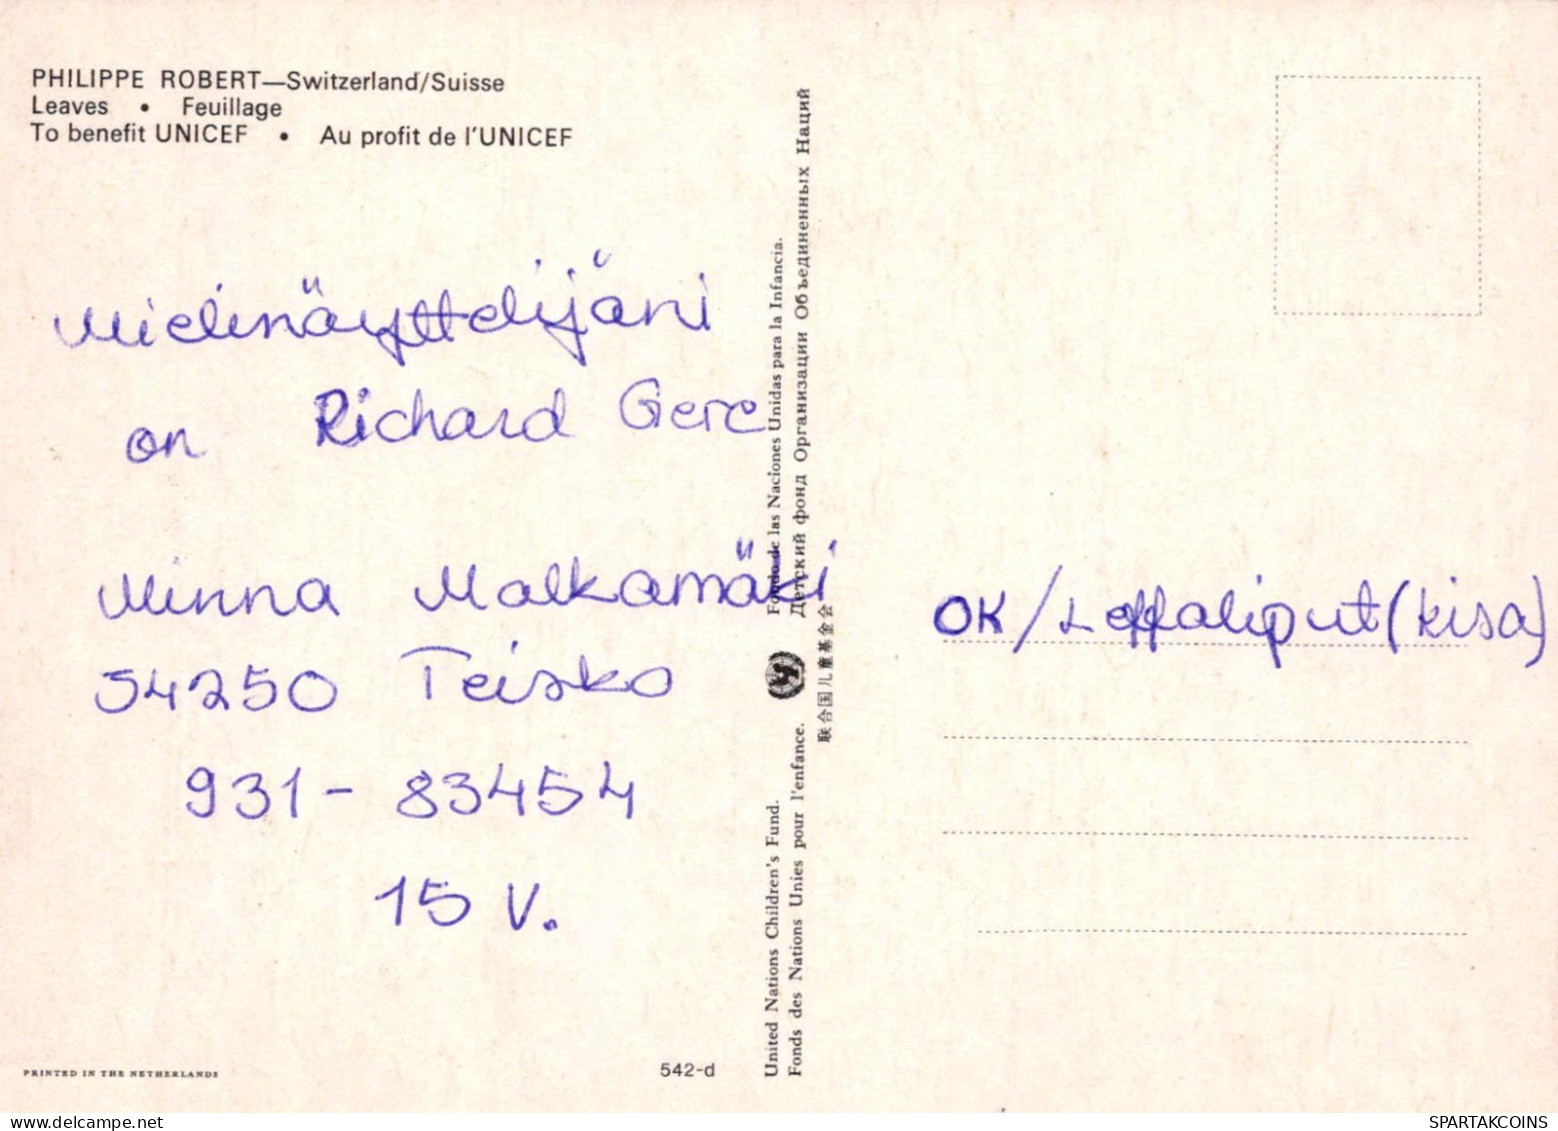 PHILIPPE ROBERT—Switzerland/Suisse
Leaves • Feuillage
To benefit UNICEF • Au profit de l'UNICEF
Mielinäyttelijäni
on Richard Gere
Minna Malkamäki
34250 Teisko
931-83454
15 v.
PRINTED IN THE NETHERLANDS
542-d
United Nations Children's Fund. Fondo de las Naciones Unidas para la Infancia.
Fonds des Nations Unies pour l'enfance. Детский фонд Организации Объединенных Наций
联合国儿童基金会
OK/Leffaliput (kisa)
www.delcampe.net
SPARTAKCOINS